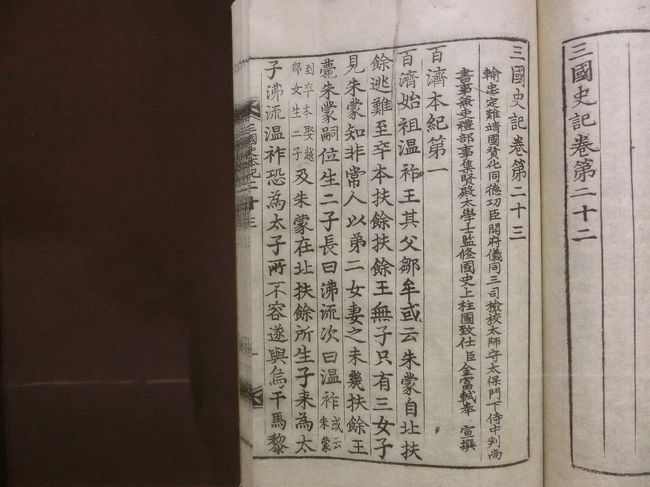 三國史記卷第二十二
三國史記卷第二十三
輸忠定難靖國賛化同德功臣開府儀同三司檢校太師守太保門下侍中判尚
書事兼吏禮部事集賢殿太學士監修國史上柱國致仕臣金富軾奉 宣撰
百濟本紀第一
百濟始祖温祚王其父鄒牟或云朱蒙自北扶
餘逃難至卒本扶餘扶餘王無子只有三女子
見朱蒙知非常人以第二女妻之未幾扶餘王
薨朱蒙嗣位生二子長曰沸流次曰温祚或云朱蒙
到卒本娶越郡女生二子及朱蒙在北扶餘所生子来為太
子沸流温祚恐為太子所不容遂與烏干馬黎